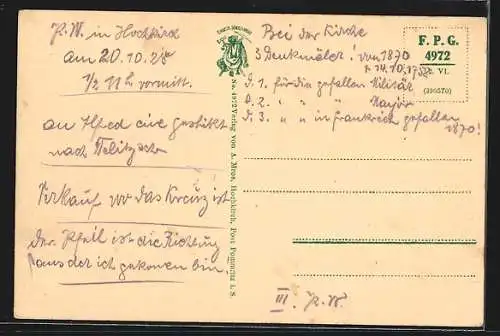 P. W. in Hochkirch
am 20.10.25
1/2 11 h vormitt.
an Alfred eine geschikt
nach
Verkauf wo das Kreuz ist
Der Pfeil ist die Richtung
aus der ich gekomen bin.
Bei der Kirche
3 Denkmäler! von 1870
14.10.17
d. 1. für die gefallen Militär
d. 2. " " " Mayor
d. 3 " " in Frankreich gefallen
1870!
F. P. G.
4972
VI.
(390570)
No. 4972 Verlag von A. Mros, Hochkirch, Post Pommritz i. S.
III. P. W.